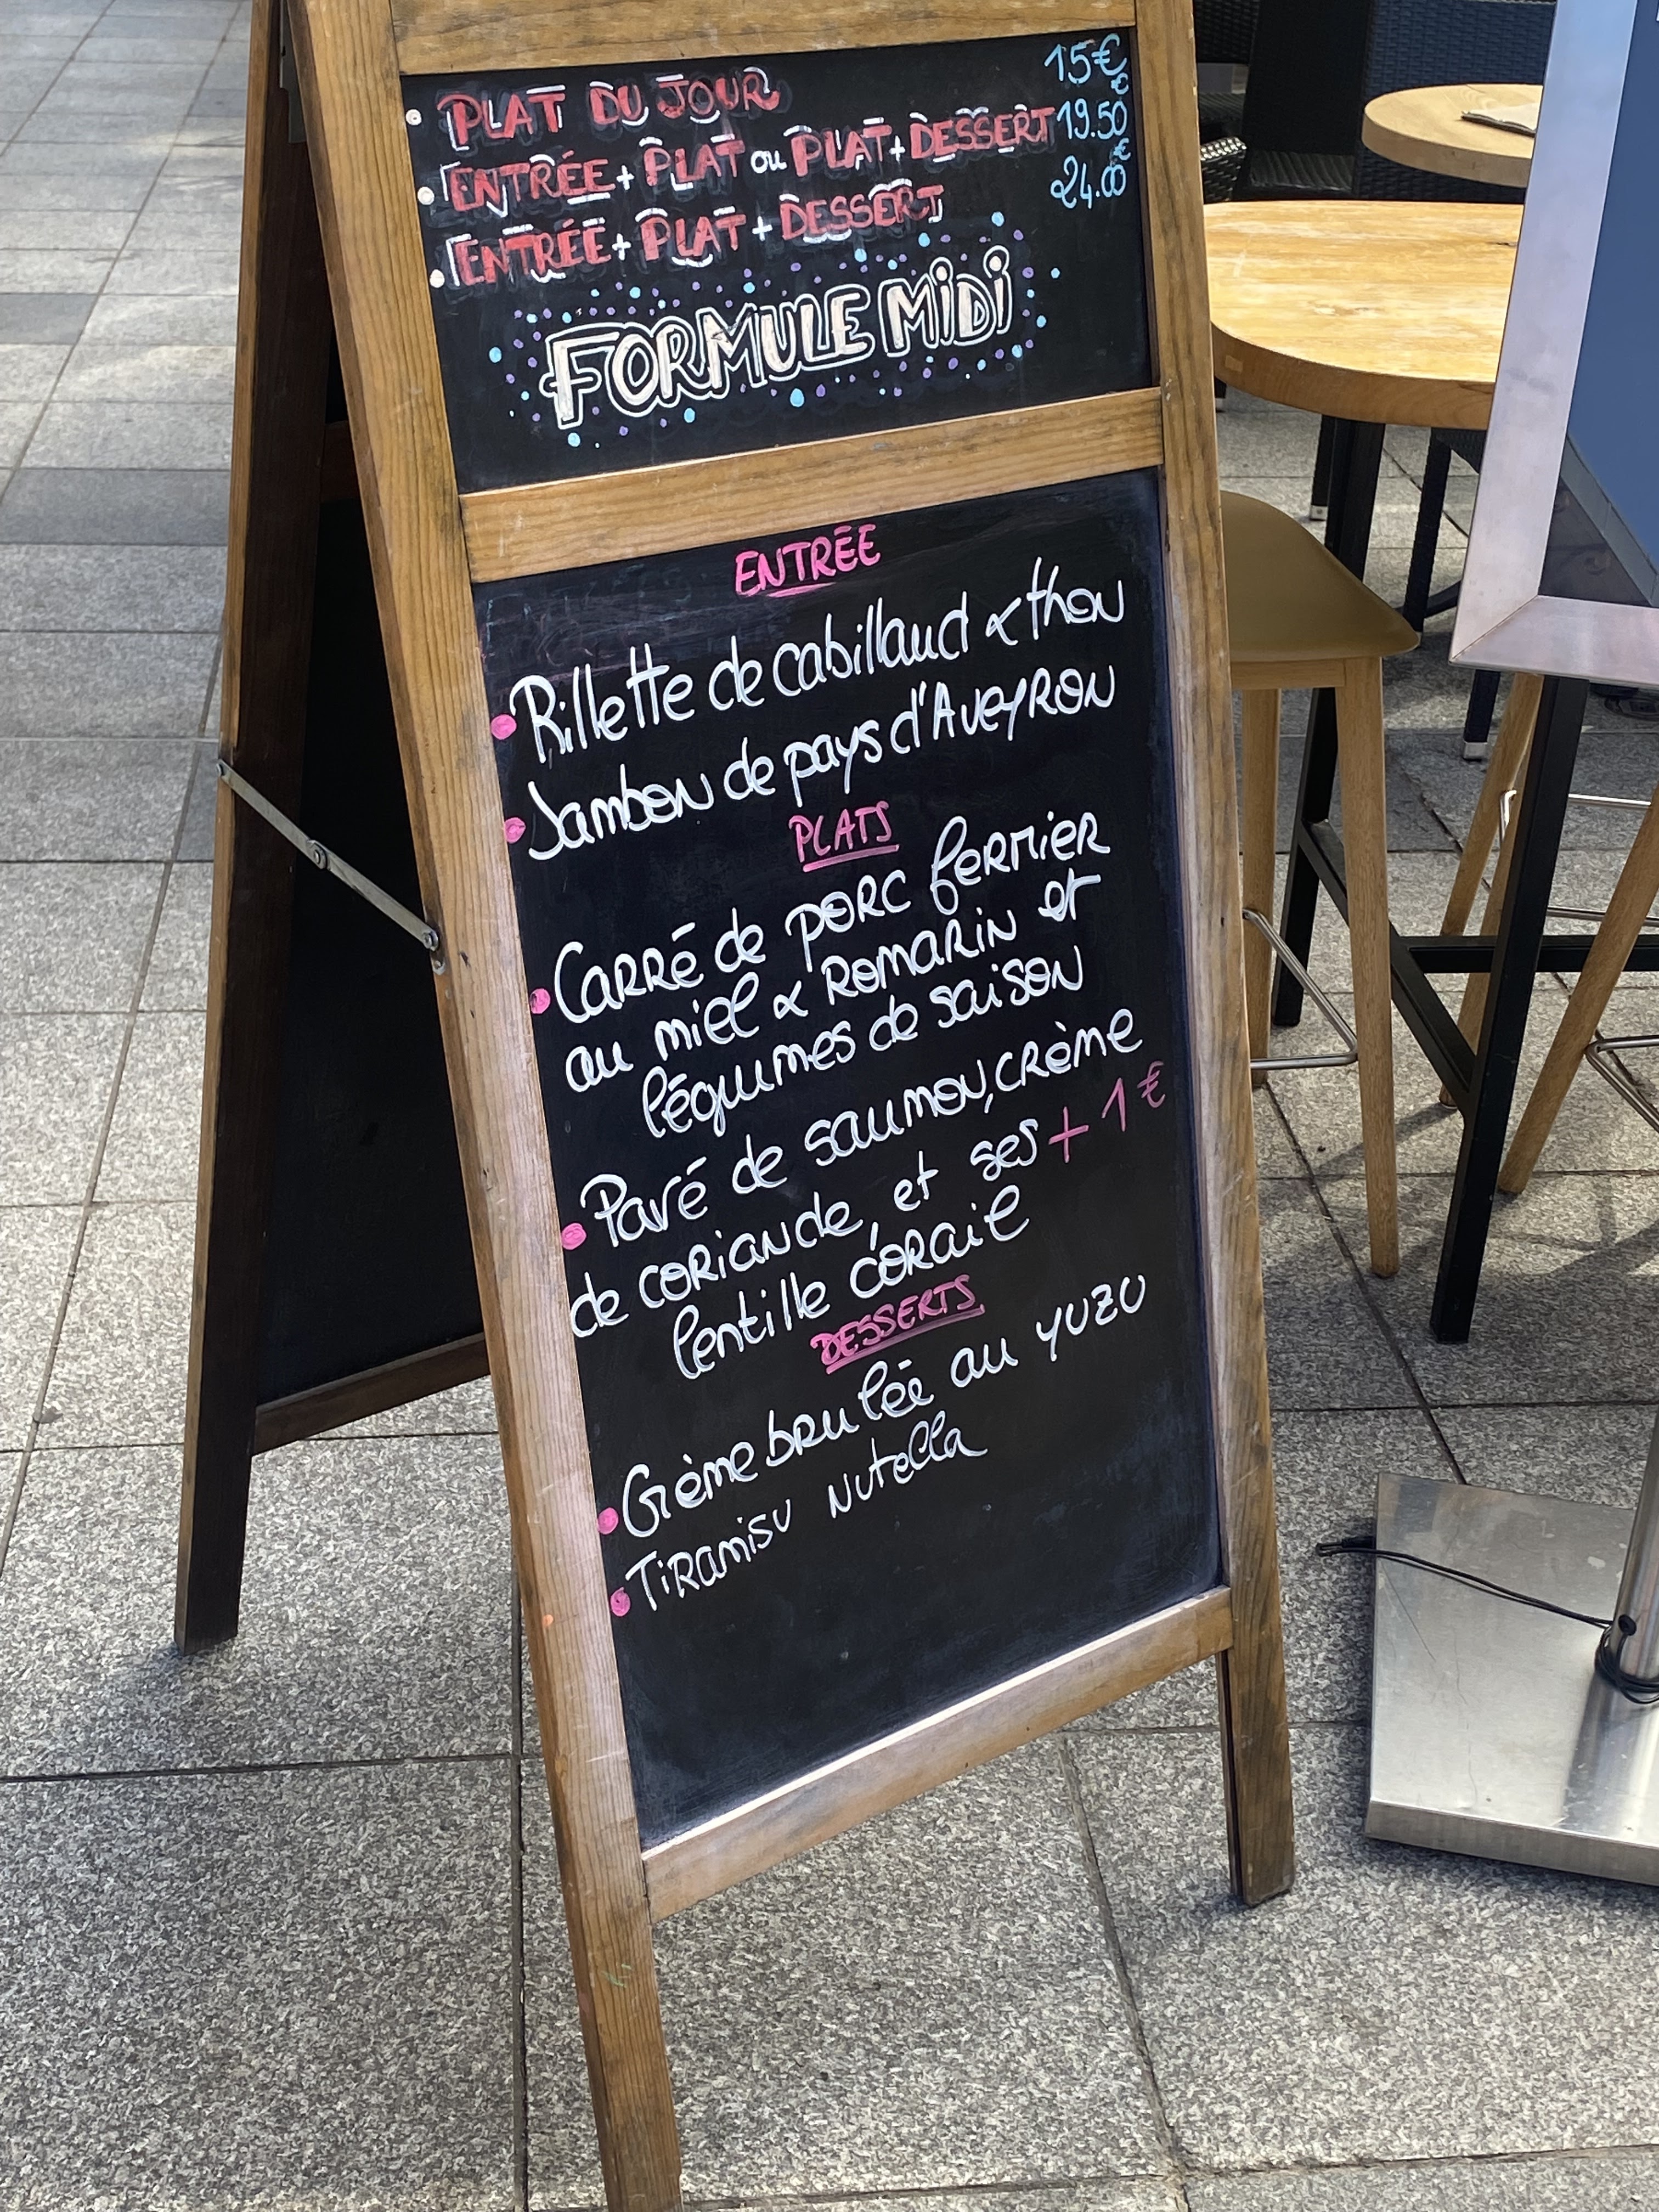 PLAT DU JOUR 15€
ENTRÉE + PLAT ou PLAT + DESSERT 19.50€
ENTRÉE + PLAT + DESSERT 24.00€
FORMULE MIDI
ENTRÉE
Rillette de cabillaud & thon
Jambon de pays d'Aveyron
PLATS
Carré de porc fermier
au miel & romarin et
légumes de saison
Pavé de saumon, crème
de coriande, et ses + 1€
lentille corail
DESSERTS
Crème brulée au yuzu
Tiramisu nutella